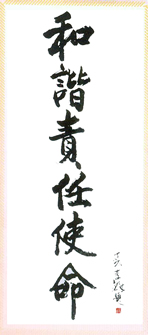 和諧責任使命